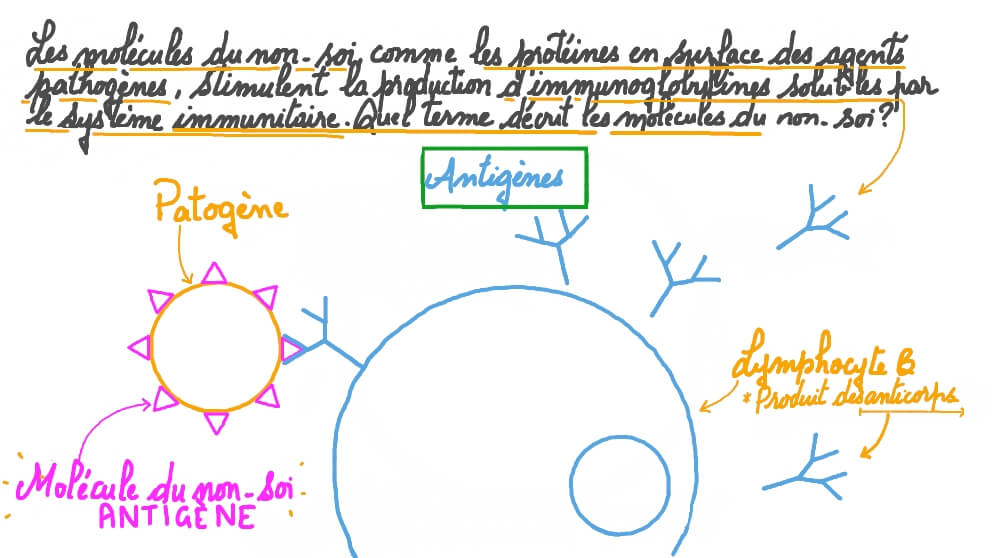 Les molécules du non-soi, comme les protéines en surface des agents
pathogènes, stimulent la production d'immunoglobulines solubles par
le système immunitaire. Quel terme décrit les molécules du non-soi?
Antigènes
Patogène
Lymphocyte B
* Produit des anticorps
Molécule du non-soi
ANTIGÈNE